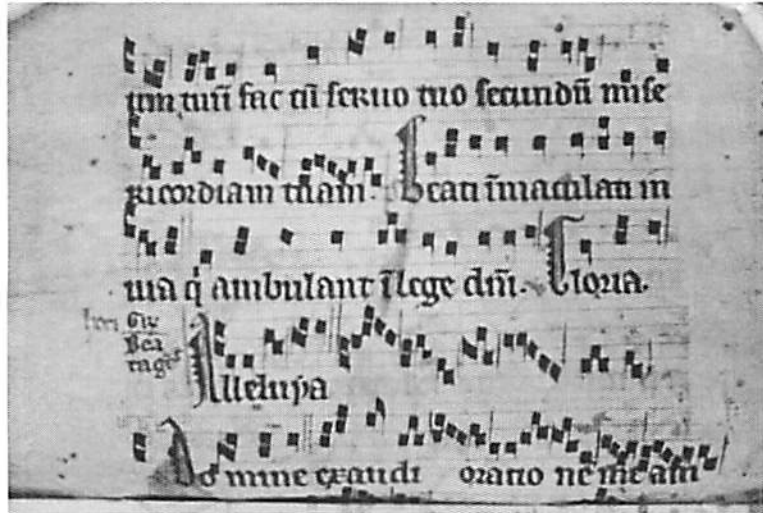 um tuū fac cū seruo tuo secundū mise
ricordiam tuam. Beati īmaculati in
uia q̇ ambulant ī lege dn̄i. Gloria.
Alleluya
Domine exaudi oratio ne me am